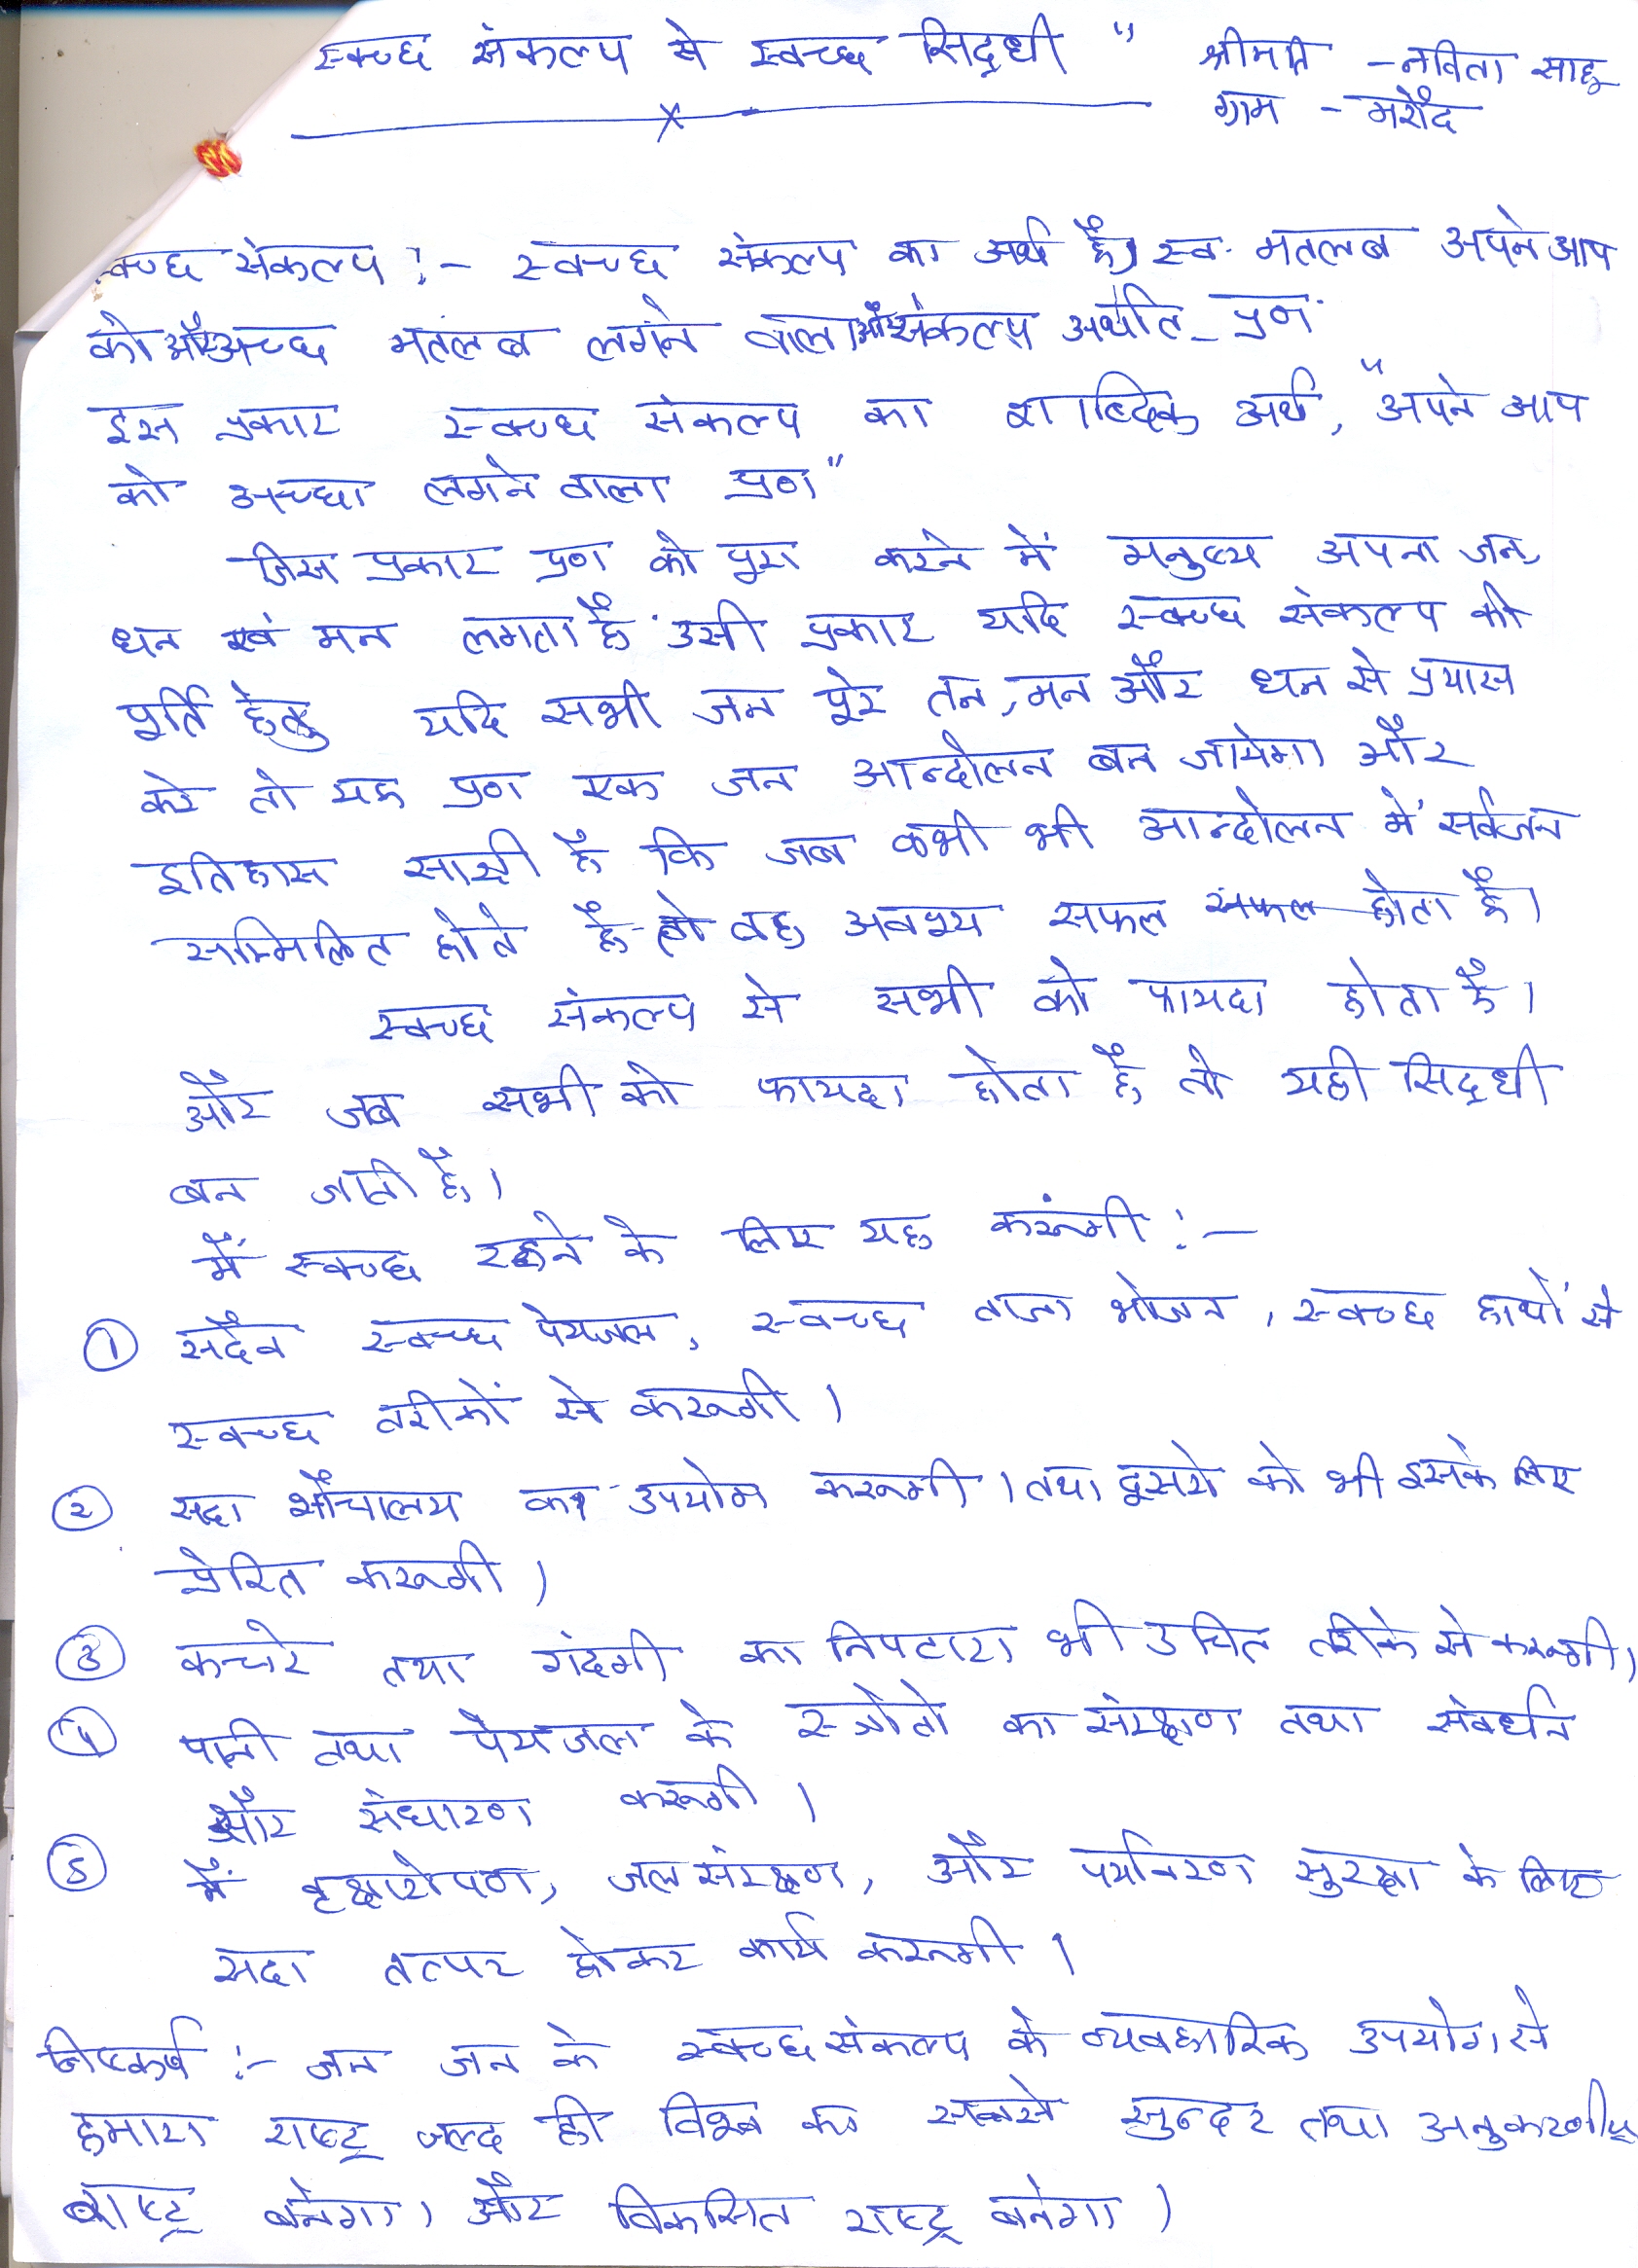 स्वच्छ संकल्प से स्वच्छ सिद्धी " श्रीमती - नविता साहू
ग्राम - मरौद
स्वच्छ संकल्प :- स्वच्छ संकल्प का अर्थ है। स्व. मतलब अपने आप
को और अच्छ मतलब लगने वाला और संकल्प अर्थात - प्रण
इस प्रकार स्वच्छ संकल्प का शाब्दिक अर्थ, "अपने आप
को अच्छा लगने वाला प्रण"
जिस प्रकार प्रण को पूरा करने में मनुष्य अपना जन,
धन एवं मन लगता है उसी प्रकार यदि स्वच्छ संकल्प की
पूर्ति हेतु यदि सभी जन पूरे तन, मन और धन से प्रयास
करे तो यह प्रण एक जन आन्दोलन बन जायेगा और
इतिहास साक्षी है कि जब कभी भी आन्दोलन में सर्वजन
सम्मिलित होते है तो वह अवश्य सफल सफल होता है।
स्वच्छ संकल्प से सभी को फायदा होता है।
और जब सभी को फायदा होता है तो यही सिद्धी
बन जाती है।
मैं स्वच्छ रहने के लिए यह करूंगी :-
① सदैव स्वच्छ पेयजल, स्वच्छ ताजा भोजन, स्वच्छ हाथों से
स्वच्छ तरीकों से करूगी।
② सदा शौचालय का उपयोग करूगी। तथा दूसरो को भी इसके लिए
प्रेरित करूगी।
③ कचरे तथा गंदगी का निपटारा भी उचित तरीके से करूगी।
④ पानी तथा पेयजल के स्त्रोतो का संरक्षण तथा संवर्धन
और संधारण करूगी।
⑤ मैं वृक्षारोपण, जल संरक्षण, और पर्यावरण सुरक्षा के लिए
सदा तत्पर होकर कार्य करूगी।
निष्कर्ष :- जन जन के स्वच्छ संकल्प के व्यवहारिक उपयोग से
हमारा राष्ट्र जल्द ही विश्व का सबसे सुन्दर तथा अनुकरणीय
राष्ट्र बनेगा। और विकसित राष्ट्र बनेगा।